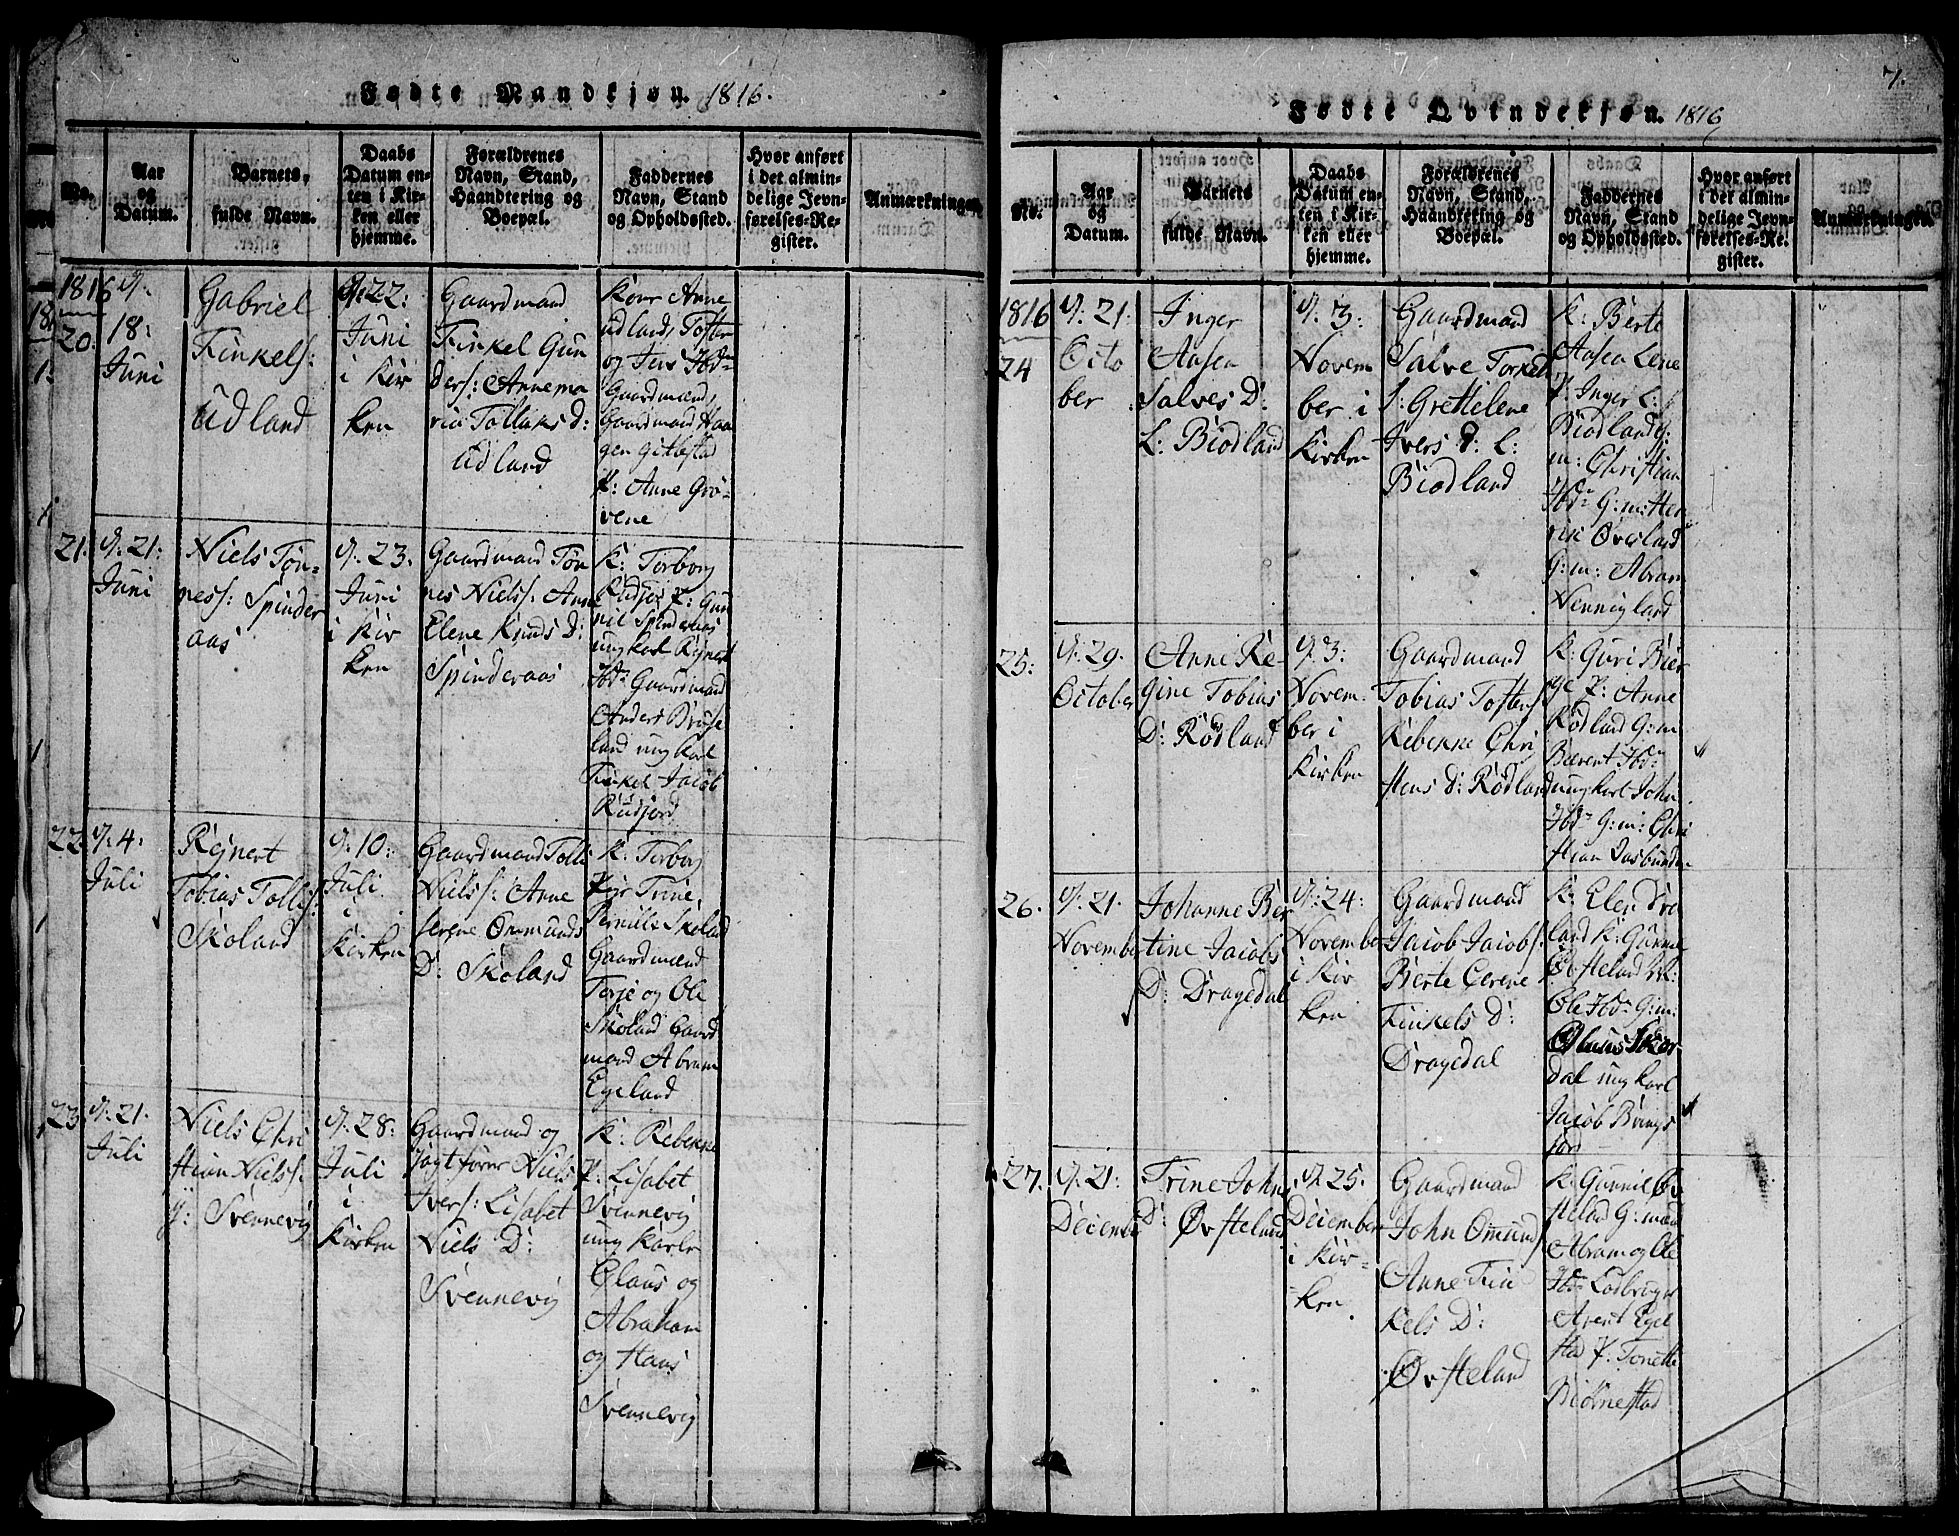 Fødte Mandkjøn. 1816.
No.
Aar
og
Datum.
Barnets,
fulde Navn.
Daabs
Datum en-
ten i Kir-
ken eller
hjemme.
Forældrenes
Navn, Stand,
Haandtering og
Boepæl.
Faddernes
Navn, Stand
og Opholdssted.
Hvor anført
i det almin-
delige Jevn-
førelses-Re-
gister.
Anmærkninger.
1816
20.
18:
Juni
Gabriel
Finkels:
Udland
22:
Juni
i Kir
ken
Gaardmand
Finkel Gun
ders: Annema
ria Tollaks D:
Udland
Kone Anne
Udland,
og Jens Ibdm
Gaardmænd,
Gaardmand Haa
gen Gitlestad
P: Anne Grø-
vene
21.
d. 21:
Juni
Niels Tøn-
ness: Spinder
aas
d. 23.
Juni
i Kir
ken
Gaardmand Tøn
nes Niels: Anne
Elene Knuds D:
Spinderaas
K: Torborg
Rudjor P: Gun
nil Spinderaas
ungkarl Rejnert
Ibdm Gaardmand
Anders Bruse
land ungkarl
Finkel Jacob
Rudjord
22.
d. 4:
Juli
Rejnert
Tobias Tollis:
Skoland
d. 10:
Juli
i
Kirken
Gaardmand Tolli
Niels: Anne
Serene Ommunds
D: Skoland
K: Torborg
Piger Trine,
Pernille Skoland
Gaardmænd
Terje og Ole
Skoland Gaard
mand Abram
Egeland
23
d. 21.
Juli
Niels Chri
stian Niels:
Svennevig
d. 28:
Juli
i
Kirken
Gaardmand og
Niels
Ivers: Lisabet
Niels D:
Svennevig
K: Rebekke
P: Lisabet
Svennevig
ung Karle
Olaus og
Abraham
og Hans
Svennevig
7.
Fødte Qvindekjøn. 1816
No.
Aar
og
Datum.
Barnets
fulde Navn.
Daabs
Datum en-
ten i Kir-
ken eller
hjemme.
Forældrenes
Navn, Stand,
Haandtering og
Boepæl.
Faddernes
Navn, Stand
og Opholdssted.
Hvor anført
i det almin-
delige Jevn-
førelses-Re-
gister.
Anmærkninger.
1816
24
d. 21.
Octo
ber
Inger
Aasea
Salves D:
L: Biodland
d. 3:
Novem
ber i
Kirken
Gaardmand
Salve Torkel
s: Grettelene
Ivers D: L:
Biodland
K: Berte
Aasea Lene
P. Inger L:
Biodland G:
m: Christian
Ibdm G:m: Hen
rik Øvrland
G:m: Abram
Hennigland
25:
d. 29.
October
Anne Re-
gine Tobias
D: Rødland
d. 3:
Novem-
ber i
Kirken
Gaardmand
Tobias Tostens:
Rebekke Chri
stens D: Rødland
K: Guri Bier
ge P: Anne
Rødland G:m
Bærent Ibdm
ungkarl John
Ibdm G:m: Chri
stian
26.
d. 21.
November
Johanne Ber
tine Jacobs
D: Dragedal
d: 24:
November
i Kir
ken
Gaardmand
Jacob Jacobs:
Berte Cerene
Finkels D:
Dragedal
K: Elen Dra
land K: Gunne
Øvsteland
Ole Ibdm G:m:
dal ungkarl
Jacob Brings
jord
27.
d. 21:
December
Trine Johns
D: Øvsteland
d. 25.
December
i Kir-
ken
Gaardmand
John Omunds:
Anne Fin
kels D:
Øvsteland
K: Gunnil Øv
steland G:mænd
Abram og Ole
Ibdm
Avent Egel
stad P. Tonette
Biørnestad